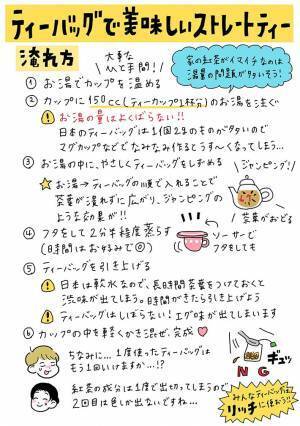 ティーバッグで美味しいストレートティー
淹れ方
大事な
ひと手間!
家の紅茶がイマイチなのは
湯量の問題が多いそう!
① お湯でカップを温める
② カップに150cc(ティーカップ1杯分)のお湯を注ぐ
お湯の量はよくばらない!!
日本のティーバッグは1個2gのものが多いので
マグカップなどでなみなみ作るとうす〜くなってしまう…
③ お湯の中に、やさしくティーバッグをしずめる
ジャンピング!
☆ お湯→ティーバッグの順で入れることで
茶葉が濡れずに広がり、ジャンピングの
ような効果が!!
茶葉がおどる
④ フタをして2分半程度蒸らす
(時間はお好みで◎)
ソーサーで
フタをしても
⑤ ティーバッグを引き上げる
日本は軟水なので、長時間茶葉をつけておくと
渋味が出てしまう。時間がきたら引き上げよう
ティーバッグはしぼらない!エグ味が出てしまいます
⑥ カップの中を軽くかき混ぜ、完成♡
ギュッ
NG
ちなみに…1度使ったティーバッグは
もう1回いけますか…!?
紅茶の成分は1度で出切ってしまうので
2回目は色しか出ないですね…
みんなティーバッグは
リッチに使おう!!